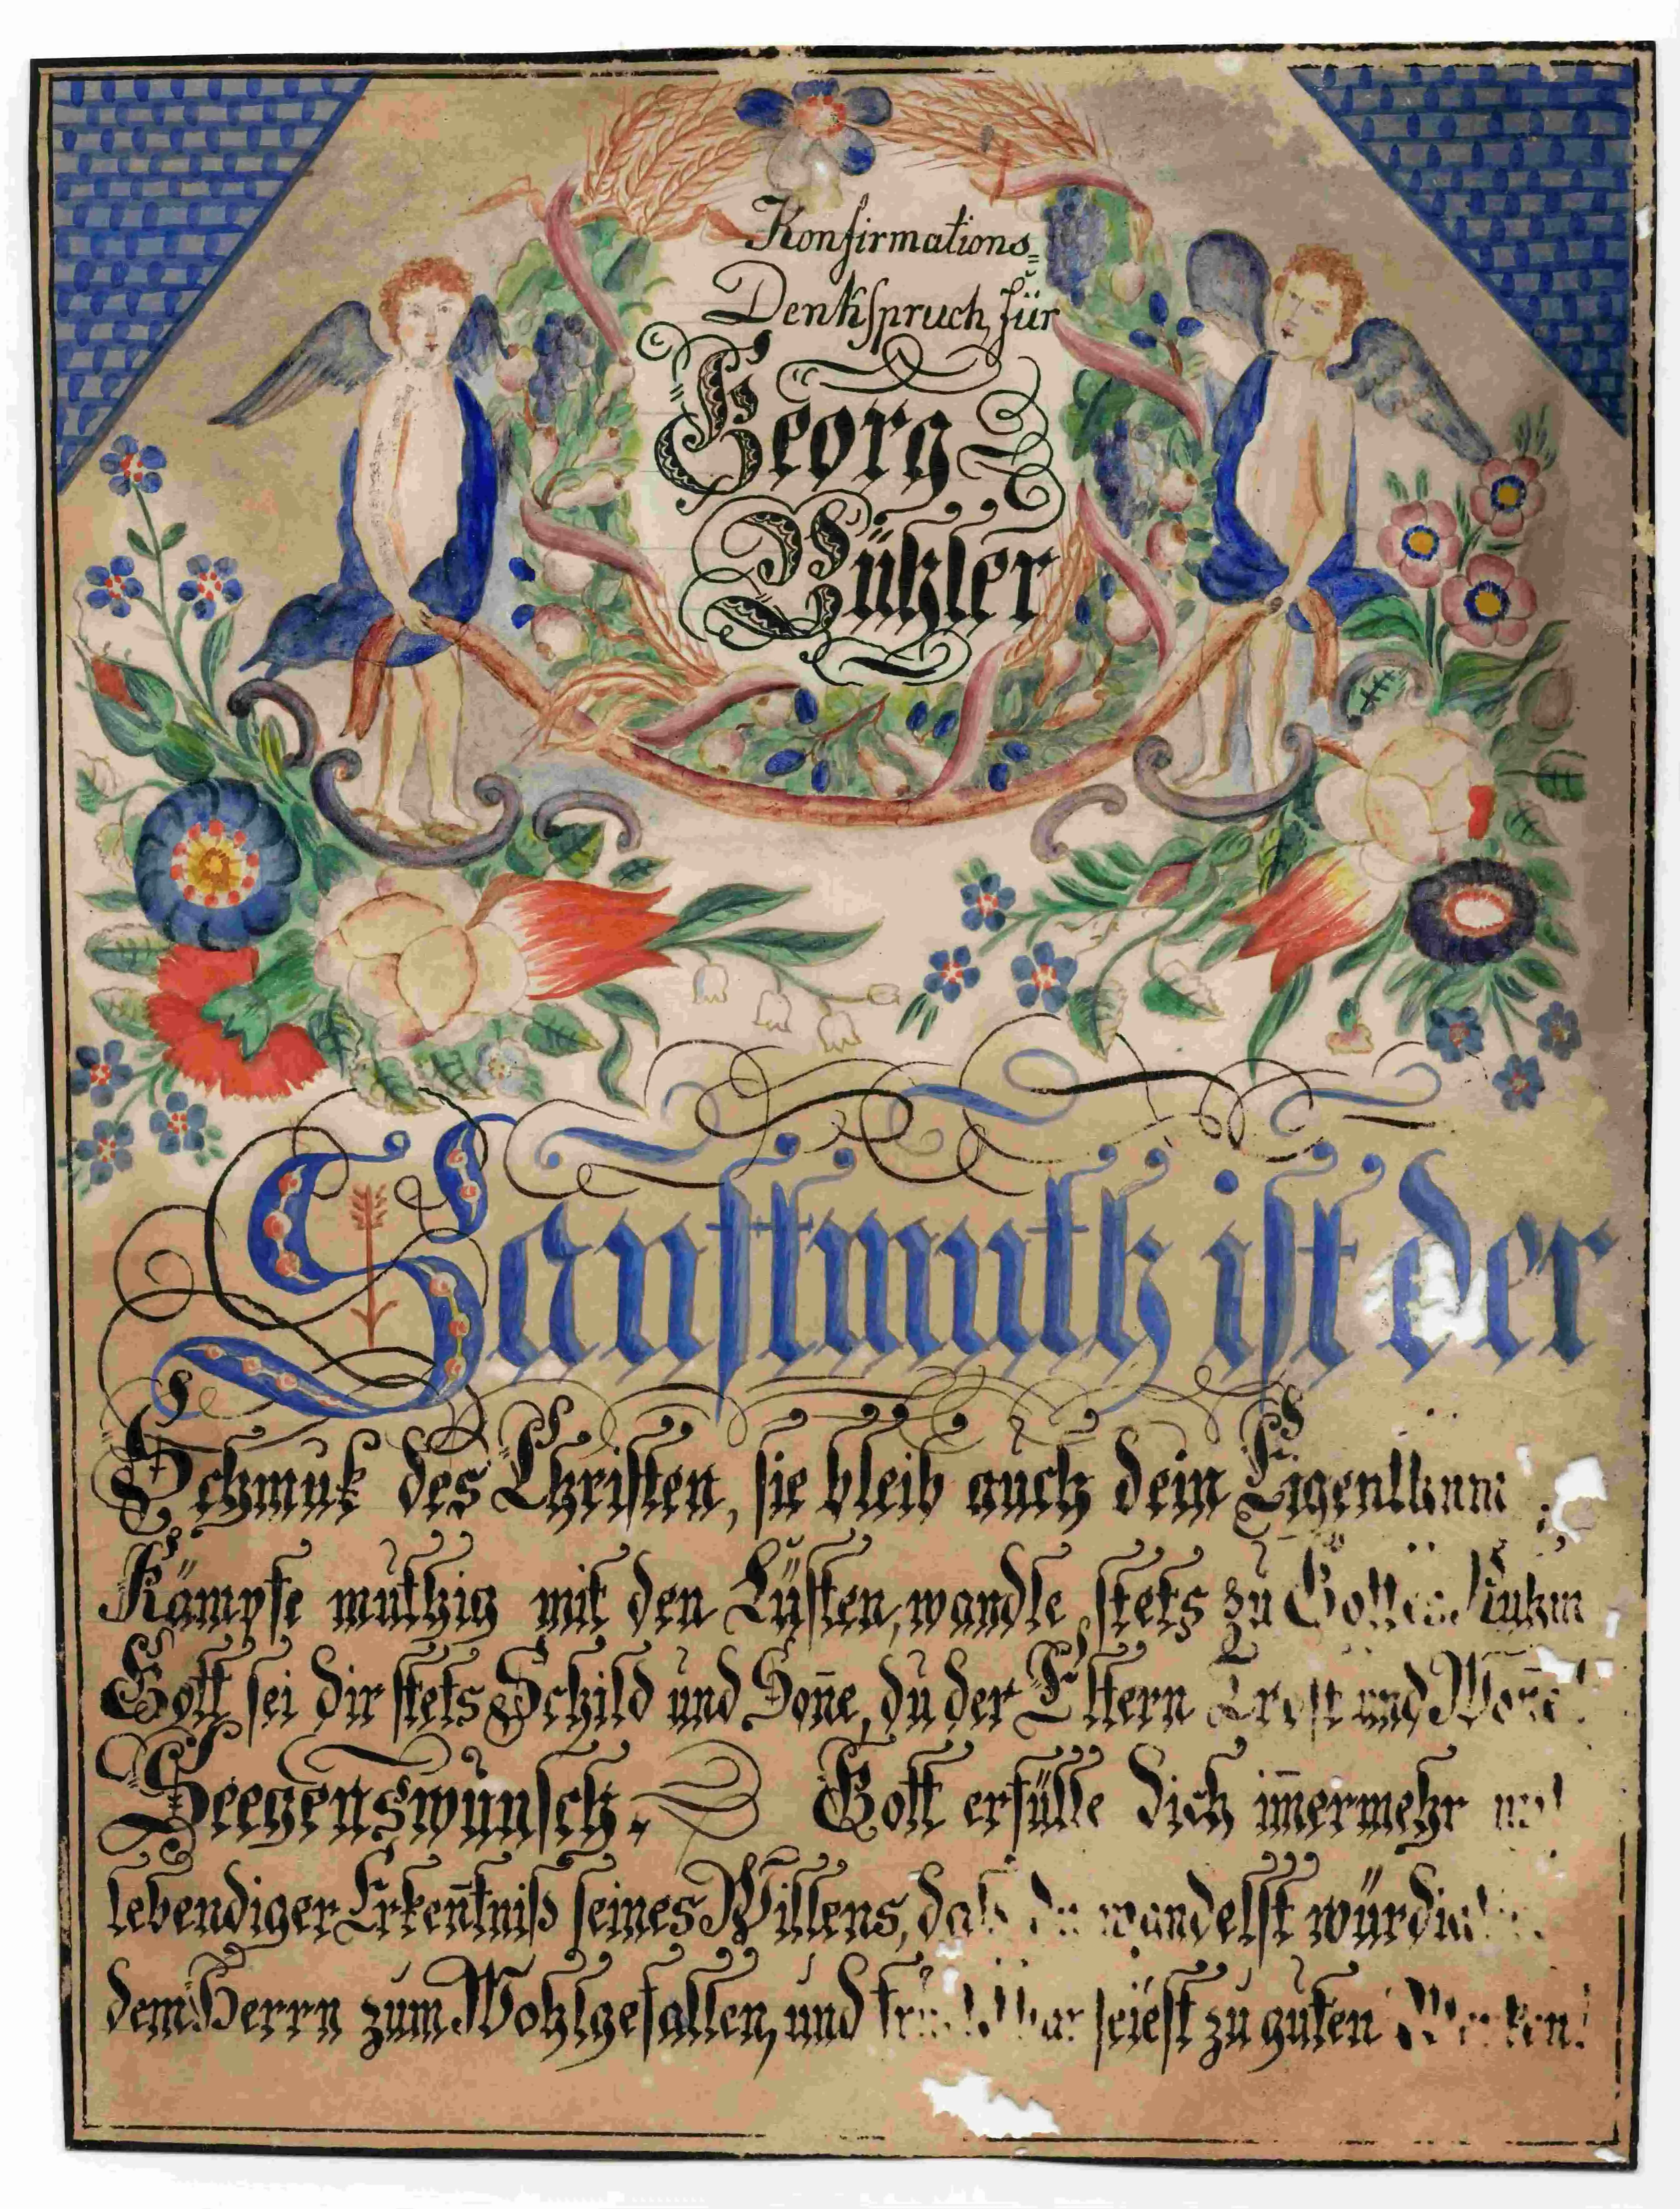 Konfirmations=
Denkspruch, für
Georg
Bühler
Sanftmuth ist der
Schmuk des Christen, sie bleib auch dein Eigenthum
Kämpfe muthig mit den Lüsten, wandle stets zu Gottes Ruhm
Gott sei dir stets Schild und Soñe, du der Eltern Trost und Woñe!
Seegenswunsch. Gott erfülle dich im̄ermehr mit
lebendiger Erkeñtniß seines Willens, daß du wandelst würdig
dem Herrn zum Wohlgefallen, und fruchtbar seiest zu guten Werken!